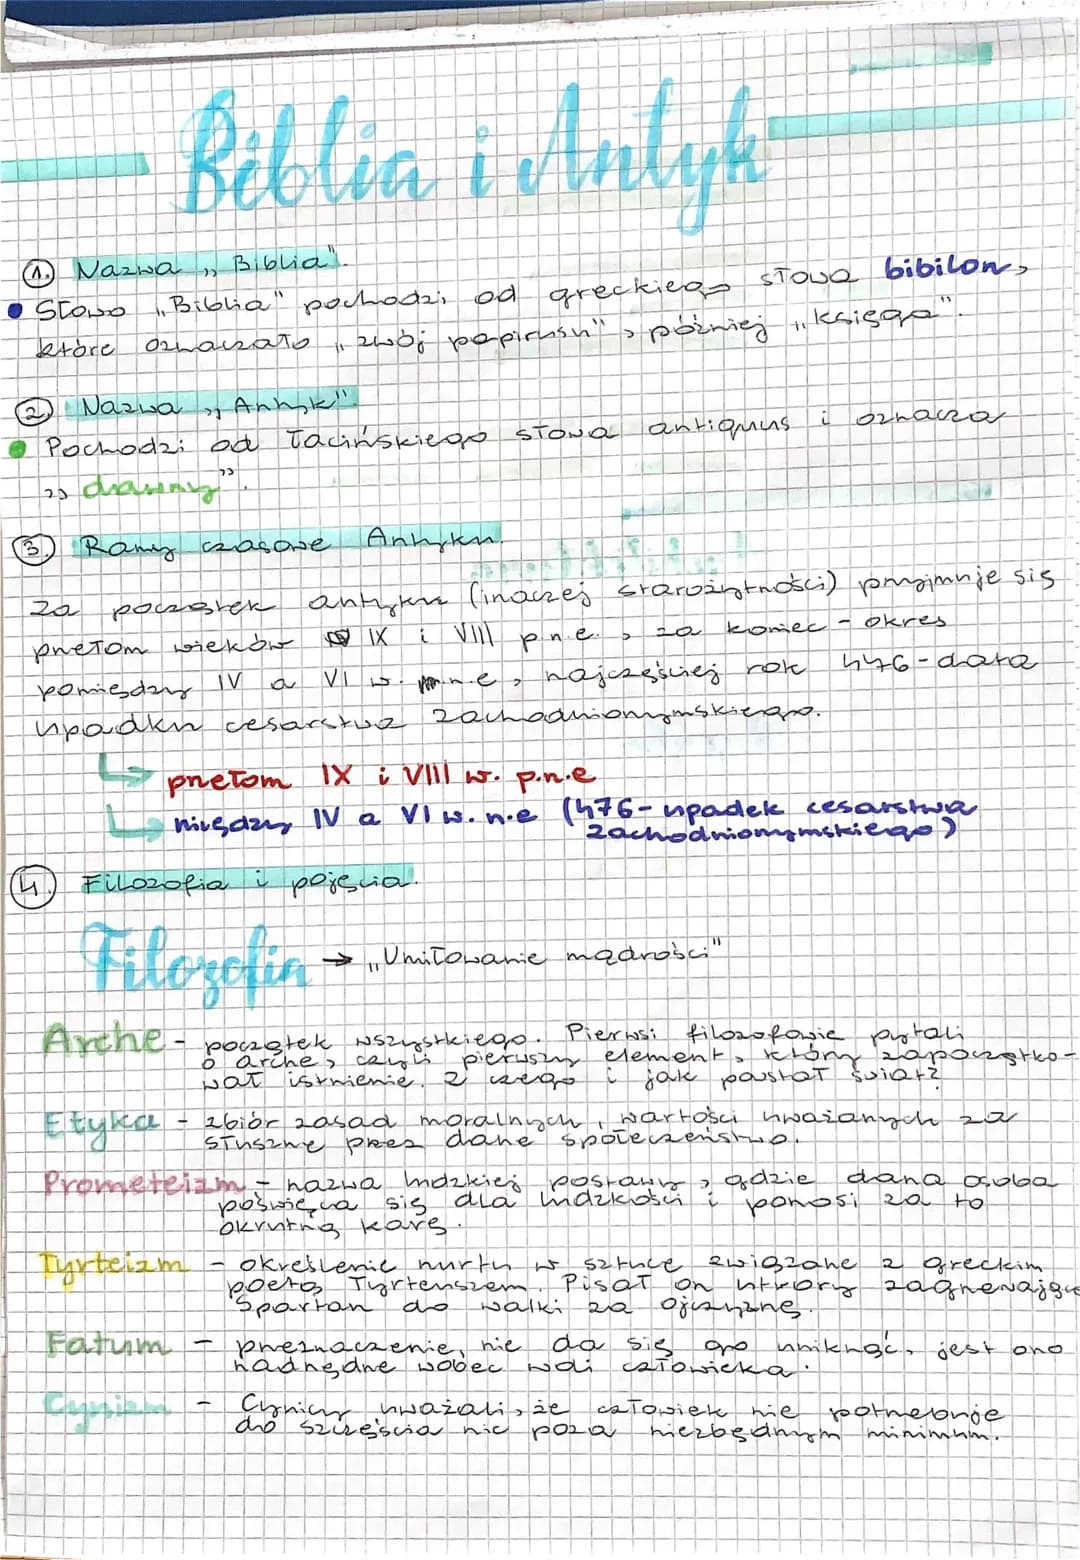 Biblia i Antyk
1. Nazwa „Biblia".
• Słowo „Biblia" pochodzi od greckiego słowa bibilon,
które oznaczało „zwój papirusu", później „księga".
2 Nazwa „Antyk".
• Pochodzi od łacińskiego słowa antiquus i oznacza
„dawny".
3 Ramy czasowe Antyku.
Za początek antyku (inaczej starożytności) przyjmuje się
przełom wieków IX i VIII p.n.e., za koniec - okres
pomiędzy IV a VI w. n.e, najczęściej rok 476 - data
upadku cesarstwa zachodniorzymskiego.
↳ przełom IX i VIII w. p.n.e
↳ między IV a VI w. n.e (476 - upadek cesarstwa
zachodniorzymskiego)
4. Filozofia i pojęcia.
Filozofia → „Umiłowanie mądrości"
Arche - początek wszystkiego. Pierwsi filozofowie pytali
o arche, czyli pierwszy element, który zapoczątko-
wał istnienie. Z czego i jak powstał świat?
Etyka - zbiór zasad moralnych, wartości uważanych za
słuszne przez dane społeczeństwo.
Prometeizm - nazwa ludzkiej postawy, gdzie dana osoba
poświęca się dla ludzkości i ponosi za to
okrutną karę.
Tyrteizm - określenie nurtu w sztuce związane z greckim
poetą Tyrteuszem. Pisał on utwory zagrzewające
Spartan do walki za ojczyznę.
Fatum - przeznaczenie, nie da się go uniknąć, jest ono
nadrzędne wobec woli człowieka.
Cynizm - Cynicy uważali, że człowiek nie potrzebuje
do szczęścia nic poza niezbędnym minimum.